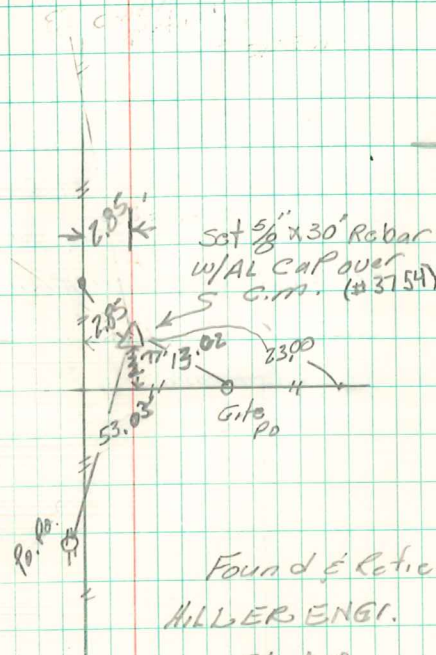 2.85'
Set 5/8" x 30" Rebar
w/AL Cap over
C.M. (#3754)
2.85
13.02
23.00
Gate
Po
53.03
Po. Po.
Found & Retie
HILLER ENGI.